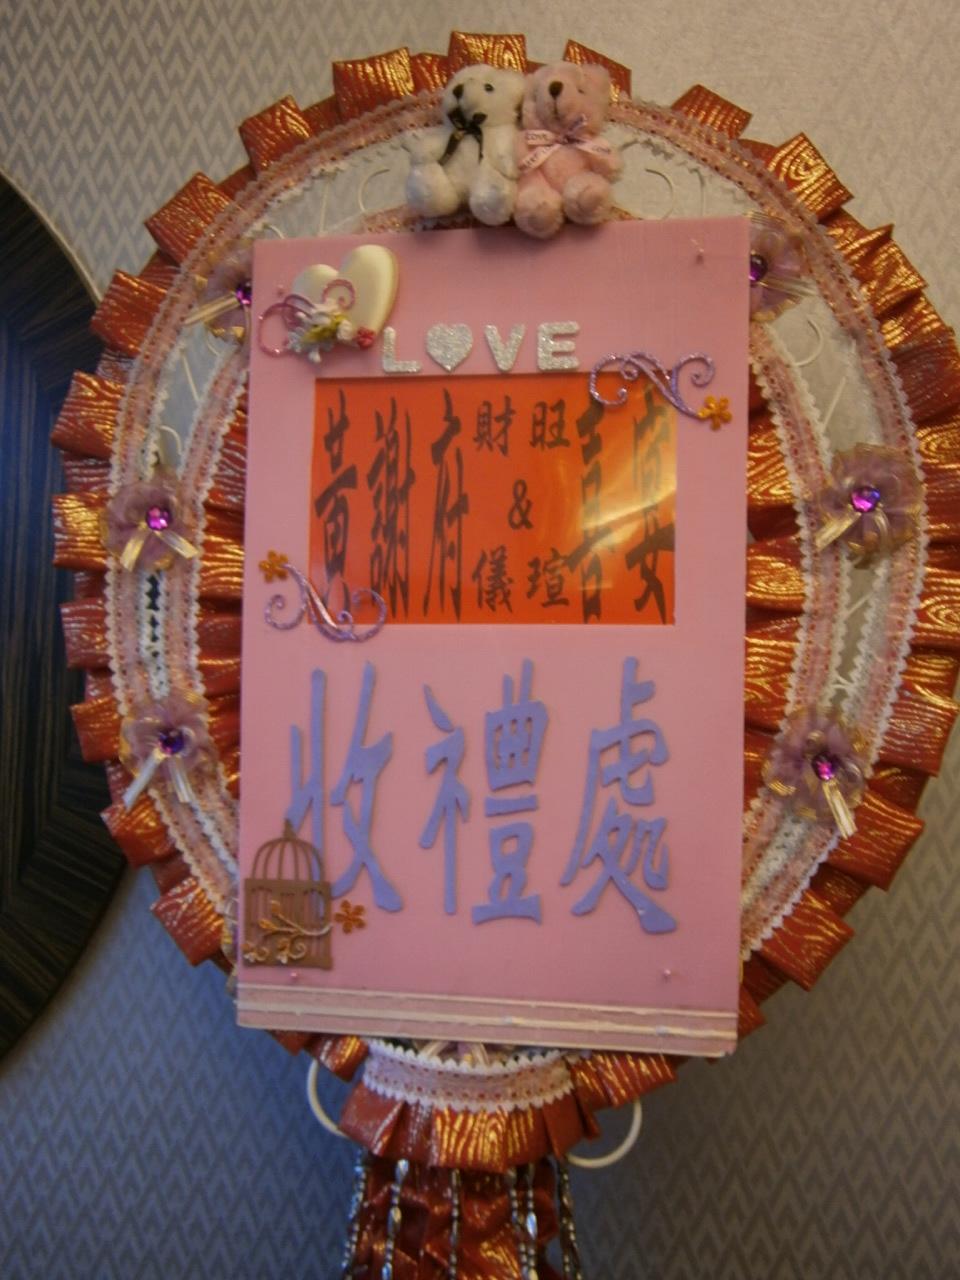 LOVE
黃謝府 財旺 & 儀瑄 喜宴
收禮處